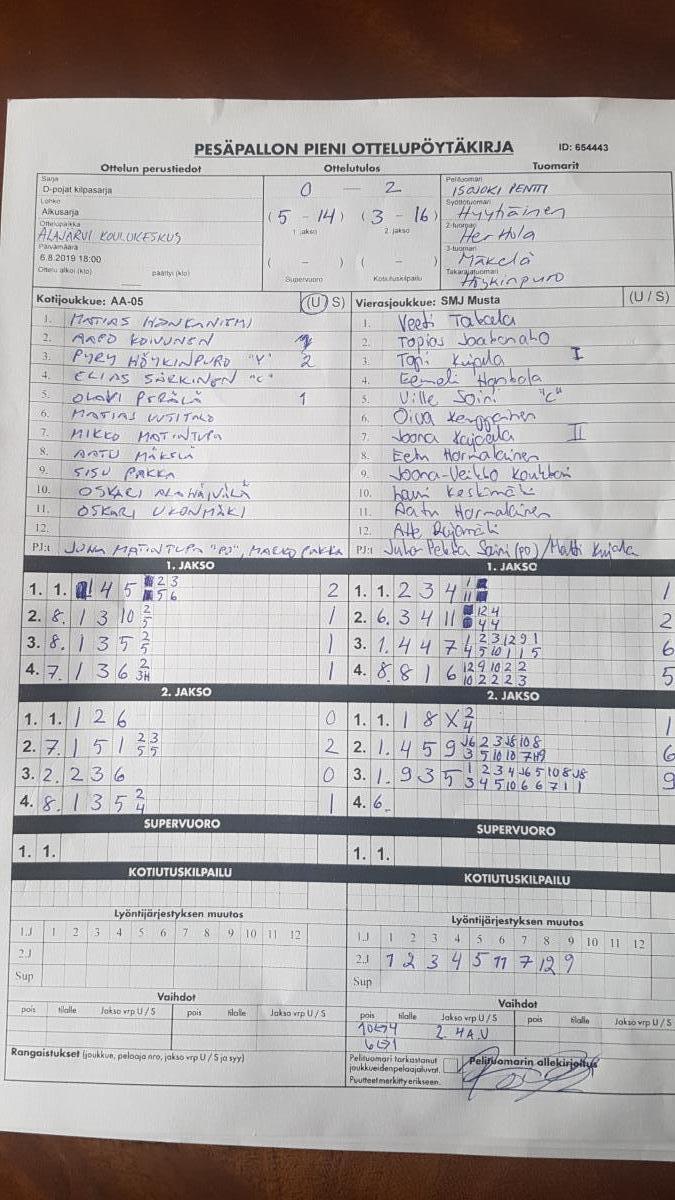 PESÄPALLON PIENI OTTELUPÖYTÄKIRJA ID: 654443
Ottelun perustiedot Ottelutulos Tuomarit
Sarja
D-pojat kilpasarja
Lohko
Alkusarja
Ottelupaikka
ALAJÄRVI KOULUKESKUS
Päivämäärä
6.8.2019 18:00
Ottelu alkoi (klo) päättyi (klo)
0 — 2
(5 - 14) (3 - 16)
1. jakso 2. jakso
( - ) ( - )
Supervuoro Kotiutuskilpailu
Pelituomari
ISOJOKI PENTTI
Syöttötuomari
Hyytiäinen
2-tuomari
Herttola
3-tuomari
Mäkelä
Takarajatuomari
Höykinpuro
Kotijoukkue: AA-05 (U S)
1. MATIAS HONKANIEMI
2. AAPO KOIVUNEN
3. PYRY HÖYKINPURO "V" 2
4. ELIAS SÄRKINEN "C"
5. OLAVI PERÄLÄ 1
6. MATIAS UUSITALO
7. MIKKO MATINTUPA
8. AATU MÄKELÄ
9. SISU PAKKA
10. OSKARI
11. OSKARI UKONMÄKI
12.
PJ:t JUHA MATINTUPA "PJ", MARKO PAKKA
Vierasjoukkue: SMJ Musta (U / S)
1. Veeti Takala
2. Topias Jaakonaho
3. Topi Kujala I
4. Eemeli
5. Ville Soini "C"
6. Oiva Kemppainen
7. Joona Kujala II
8. Eetu Hormalainen
9. Joona-Veikko
10. Lauri Keskimäki
11. Aatu Hormalainen
12. Atte Rajamäki
PJ:t Juha-Pekka Soini (PJ) / Matti Kujala
1. JAKSO
1. 1. 1 4 5 2 3 2
5 6
2. 8. 1 3 10 2 1
5
3. 8. 1 3 5 2 1
5
4. 7. 1 3 6 2 1
3H
2. JAKSO
1. 1. 1 2 6 0
2. 7. 1 5 1 2 3 2
5 5
3. 2. 2 3 6 0
4. 8. 1 3 5 2 1
4
SUPERVUORO
1. 1.
KOTIUTUSKILPAILU
1. JAKSO
1. 1. 2 3 4 1 1
11
2. 6. 3 4 11 12 4 2
4 4
3. 1. 4 4 7 1 2 3 12 9 1 6
4 5 10 1 1 5
4. 8. 8 1 6 12 9 10 2 2 5
10 2 2 2 3
2. JAKSO
1. 1. 1 8 X 2 1
4
2. 1. 4 5 9 J6 2 3 J8 10 8 6
3 5 10 10 7 H9
3. 1. 9 3 5 1 2 3 4 J6 5 10 8 J8 9
3 4 5 10 6 6 7 1 1
4. 6.
SUPERVUORO
1. 1.
KOTIUTUSKILPAILU
Lyöntijärjestyksen muutos
1.J 1 2 3 4 5 6 7 8 9 10 11 12
2.J
Sup
Vaihdot
pois tilalle Jakso vrp U / S pois tilalle Jakso vrp U / S
Rangaistukset (joukkue, pelaaja nro, jakso vrp U / S ja syy)
Lyöntijärjestyksen muutos
1.J 1 2 3 4 5 6 7 8 9 10 11 12
2.J 1 2 3 4 5 11 7 12 9
Sup
Vaihdot
pois tilalle Jakso vrp U / S pois tilalle Jakso vrp U / S
10↔4 2. 4A.U
6↔1
Pelituomari tarkastanut
joukkueiden pelaajaluvat.
Puutteet merkitty erikseen.
Pelituomarin allekirjoitus